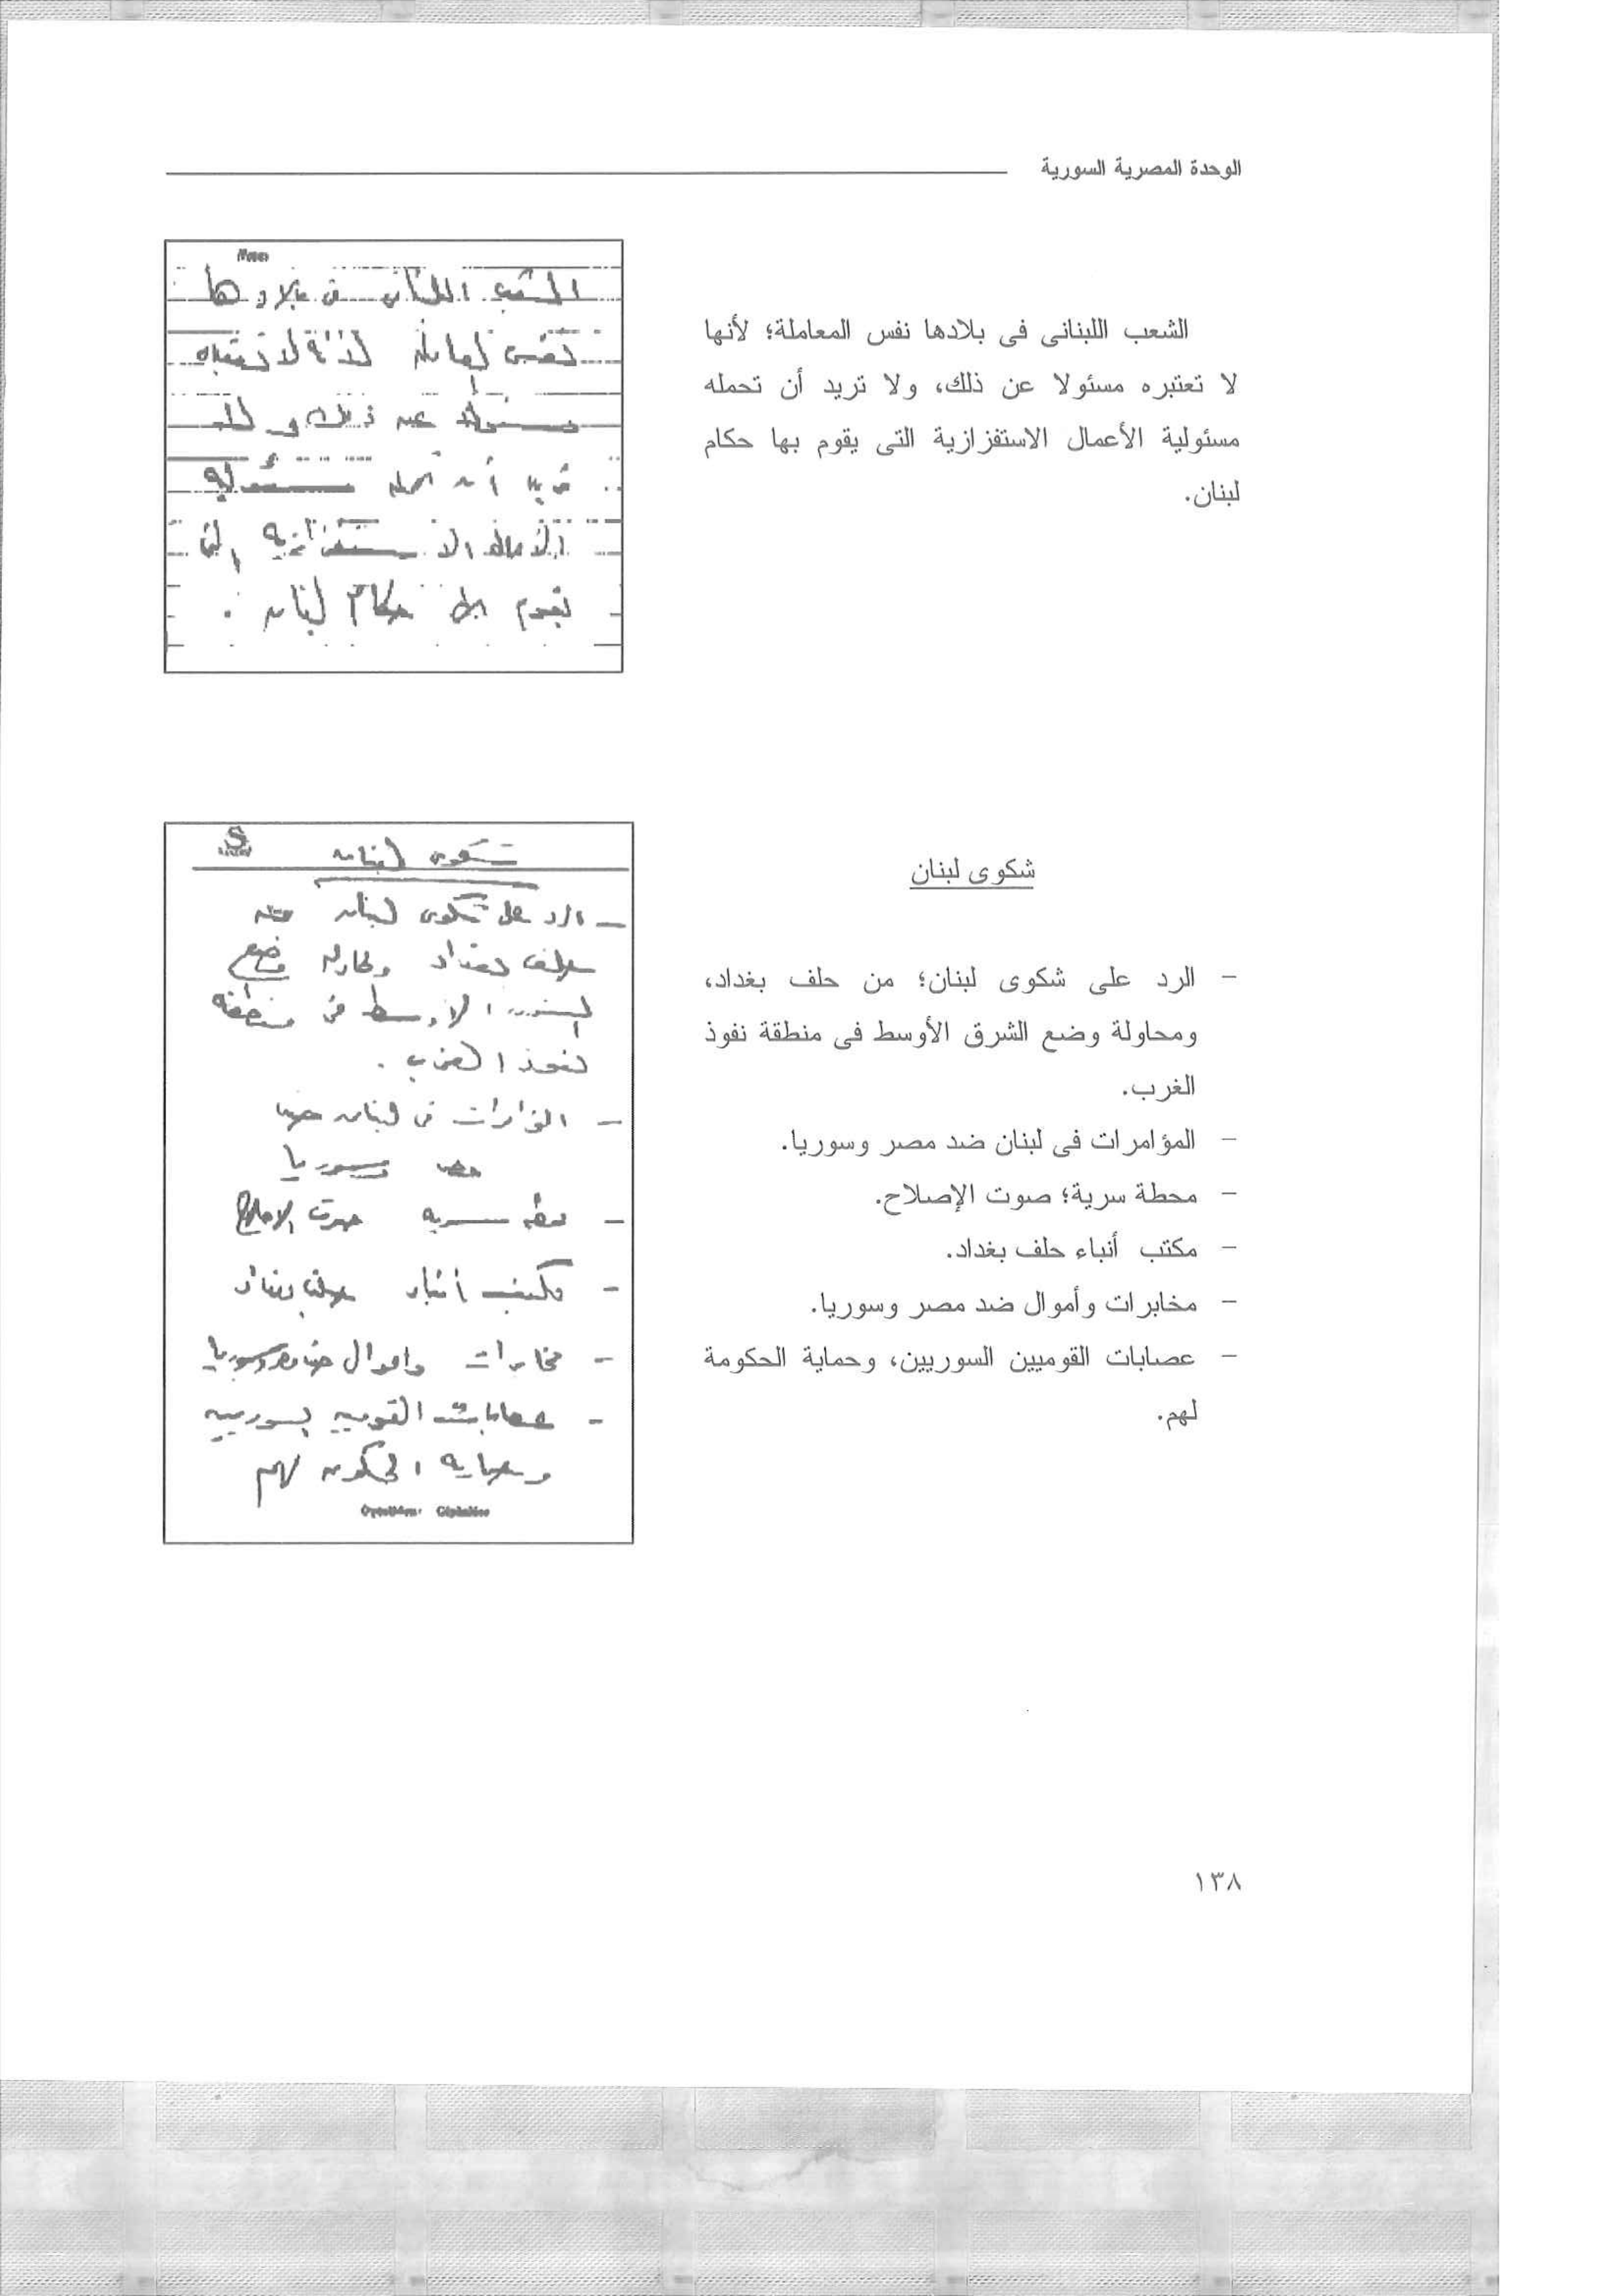 الوحدة المصرية السورية
الشعب اللبنانى فى بلادها نفس المعاملة؛ لأنها
لا تعتبره مسئولا عن ذلك، ولا تريد أن تحمله
مسئولية الأعمال الاستفزازية التى يقوم بها حكام
لبنان.
Notes
الشعب اللبنانى فى بلادها
نفس المعاملة لانها لا تعتبره
مسئولا عن ذلك ولا
تريد أن تحمله مسئولية
الأعمال الاستفزازية التى
يقوم بها حكام لبنان .
شكوى لبنان
– الرد على شكوى لبنان؛ من حلف بغداد،
ومحاولة وضع الشرق الأوسط فى منطقة نفوذ
الغرب.
– المؤامرات فى لبنان ضد مصر وسوريا.
– محطة سرية؛ صوت الإصلاح.
– مكتب أنباء حلف بغداد.
– مخابرات وأموال ضد مصر وسوريا.
– عصابات القوميين السوريين، وحماية الحكومة
لهم.
شكوى لبنان
– الرد على شكوى لبنان من
حلف بغداد ومحاولة وضع
الشرق الاوسط فى منطقة
نفوذ الغرب .
– المؤامرات فى لبنان ضد
مصر وسوريا
– محطه سريه صوت الاصلاح
– مكتب أنباء حلف بغداد
– مخابرات واموال ضد مصر وسوريا
– عصابات القوميين السوريين
وحمايه الحكومه لهم
١٣٨